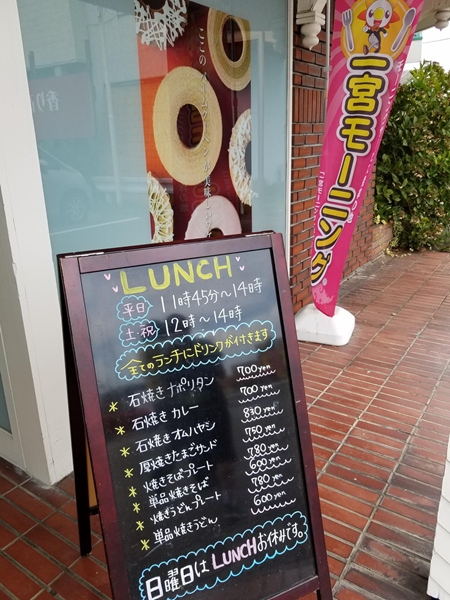 LUNCH
平日 11時45分～14時
土・祝 12時～14時
全てのランチにドリンクが付きます
* 石焼きナポリタン 700yen
* 石焼き カレー 700yen
* 石焼き オムハヤシ 830yen
* 厚焼きたまごサンド 750yen
* 焼きそばプレート 780yen
* 単品焼きそば 600yen
* 焼きうどんプレート 780yen
* 単品焼きうどん 600yen
日曜日は LUNCHお休みです。
一宮モーニング